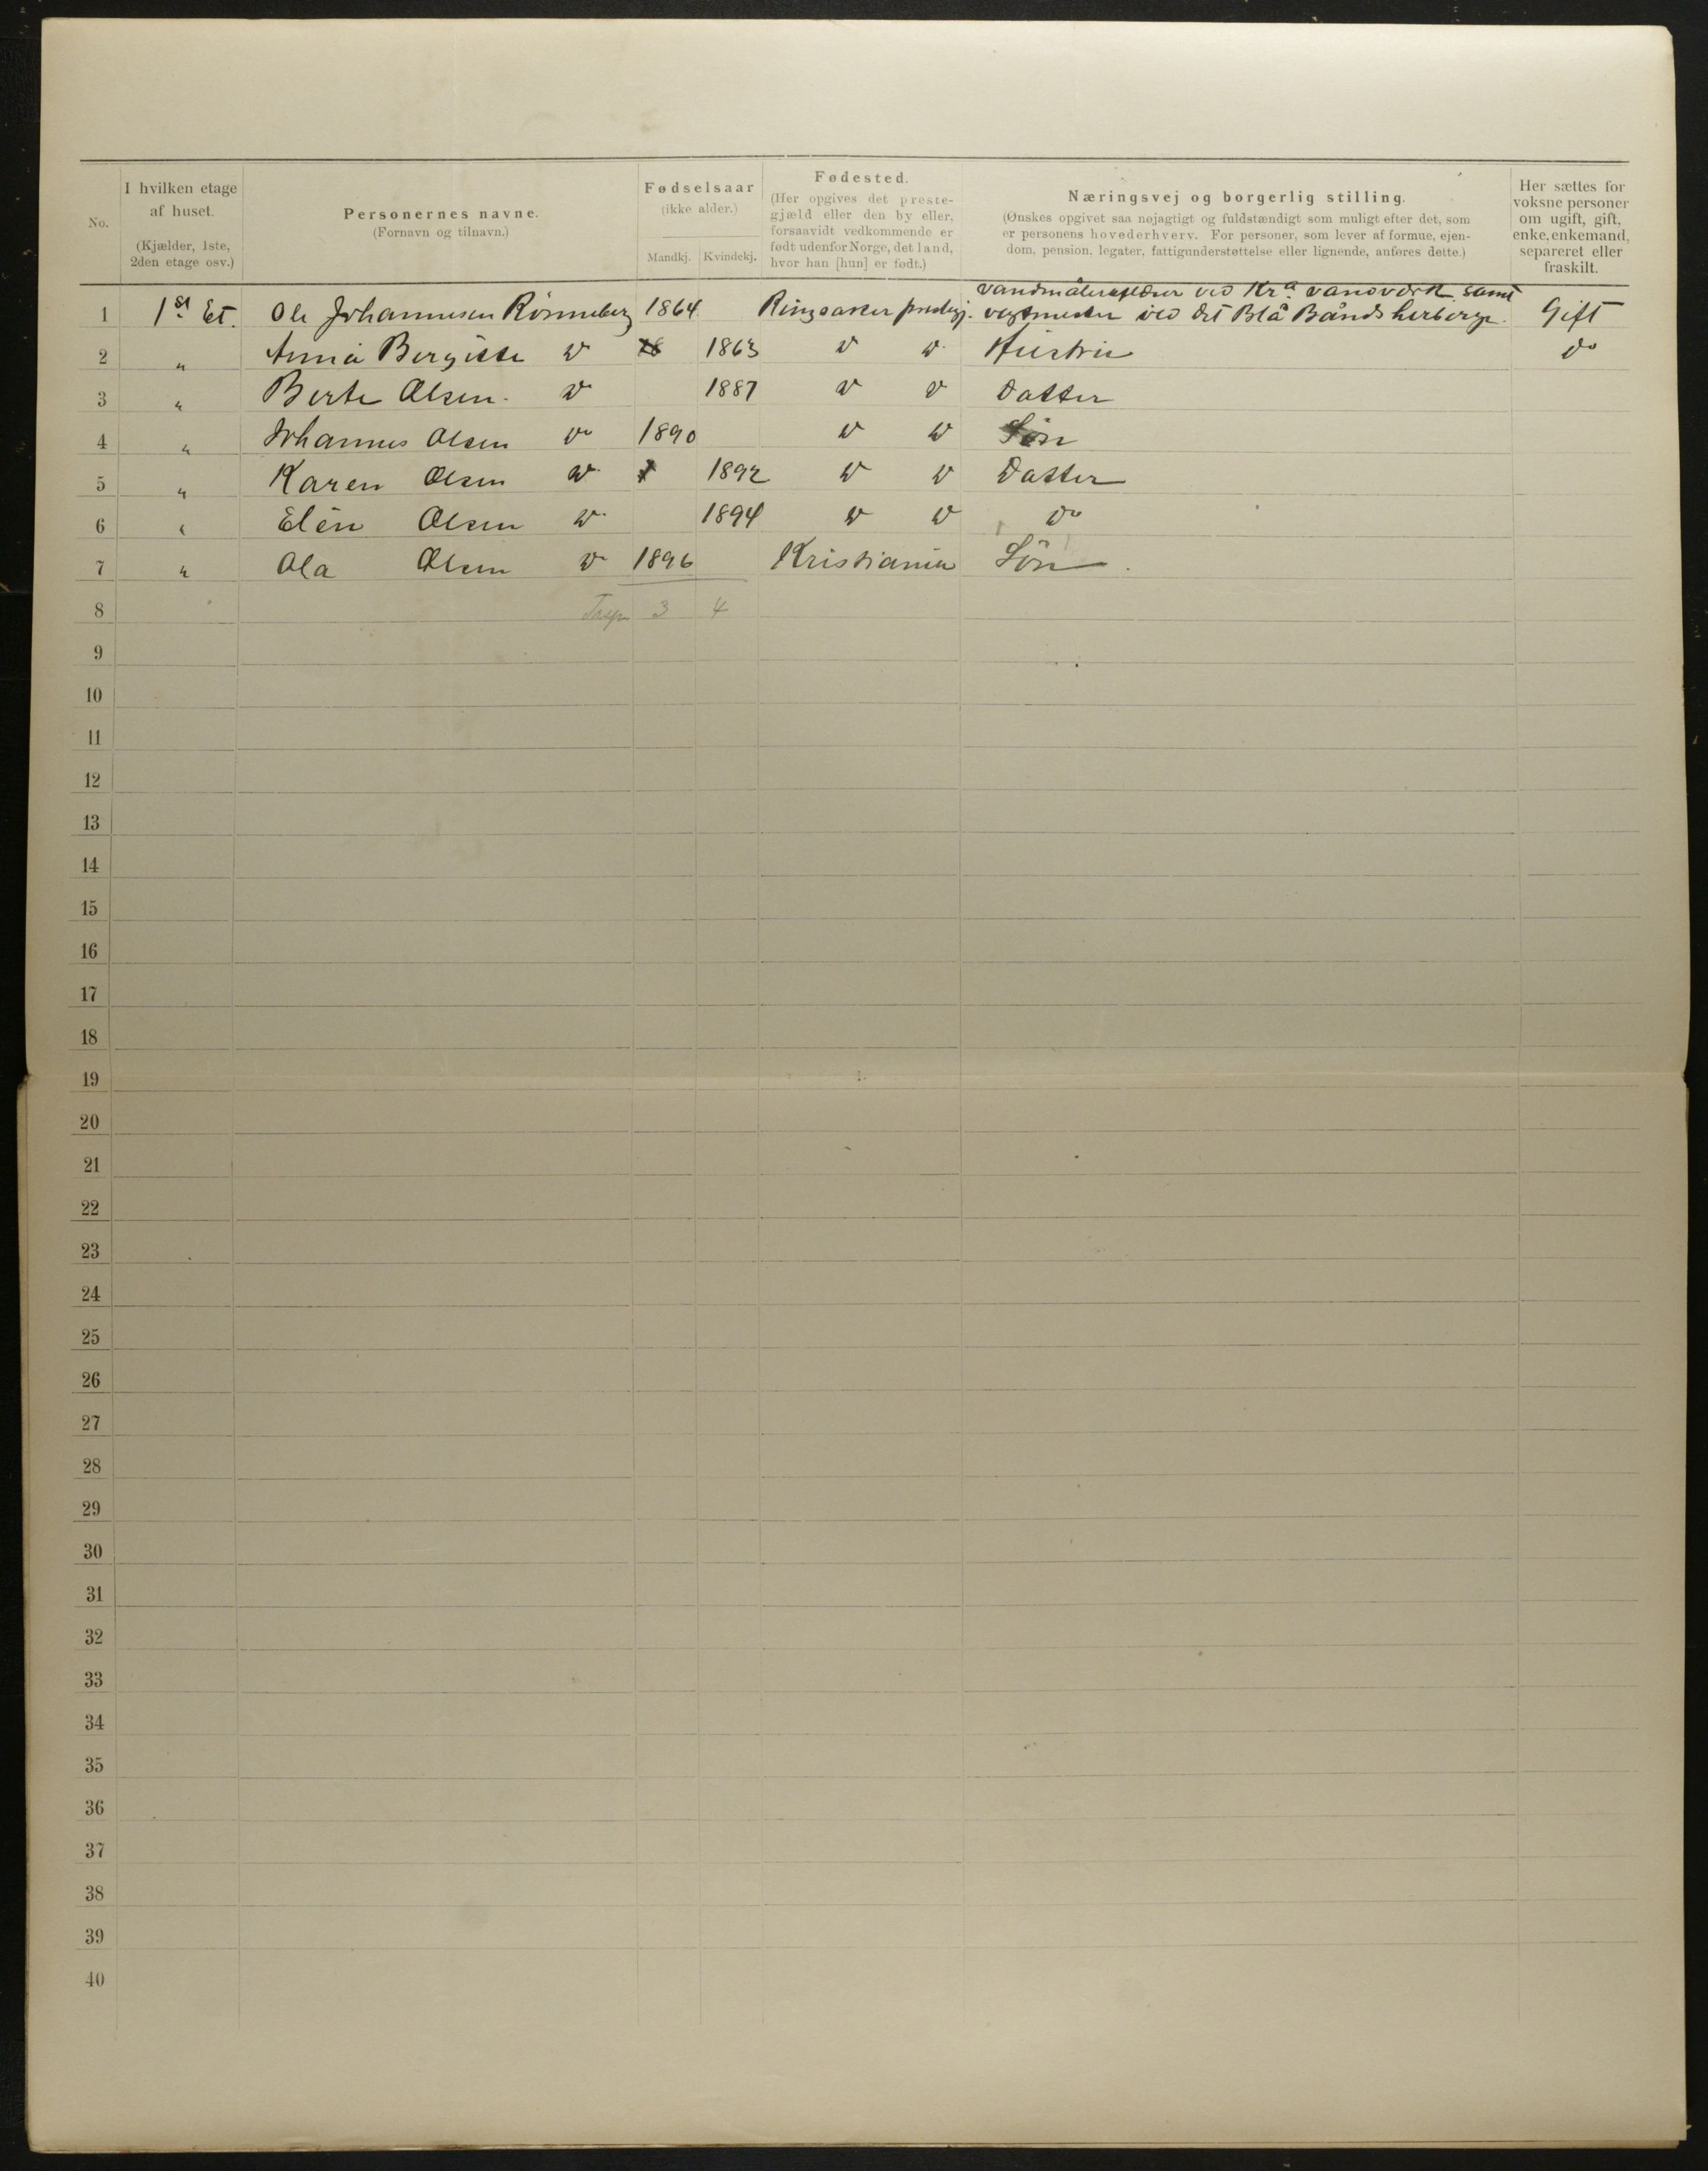 No.
I hvilken etage
af huset.
(Kjælder, 1ste,
2den etage osv.)
Personernes navne.
(Fornavn og tilnavn.)
Fødselsaar
(ikke alder.)
Mandkj. Kvindekj.
Fødested.
(Her opgives det preste-
gjæld eller den by eller,
forsaavidt vedkommende er
født udenfor Norge, det land,
hvor han [hun] er født.)
Næringsvej og borgerlig stilling.
(Ønskes opgivet saa nøjagtigt og fuldstændigt som muligt efter det, som
er personens hovederhverv. For personer, som lever af formue, ejen-
dom, pension, legater, fattigunderstøttelse eller lignende, anføres dette.)
Her sættes for
voksne personer
om ugift, gift,
enke, enkemand,
separeret eller
fraskilt.
ved Kra. vandværk samt
1 1st Et. Ole Johannesen Rönneberg 1864 Ringsaker prestegj. ved det Blå Bånds herberge. Gift
2 " Anna Bergitte do 1863 do do Hustru do
3 " Berte Olsen do 1887 do do Datter
4 " Johannes Olsen do 1890 do do Sön
5 " Karen Olsen do 1892 do do Datter
6 " Elén Olsen do 1894 do do do
7 " Ola Olsen do 1896 Kristiania Sön
8 3 4
9
10
11
12
13
14
15
16
17
18
19
20
21
22
23
24
25
26
27
28
29
30
31
32
33
34
35
36
37
38
39
40